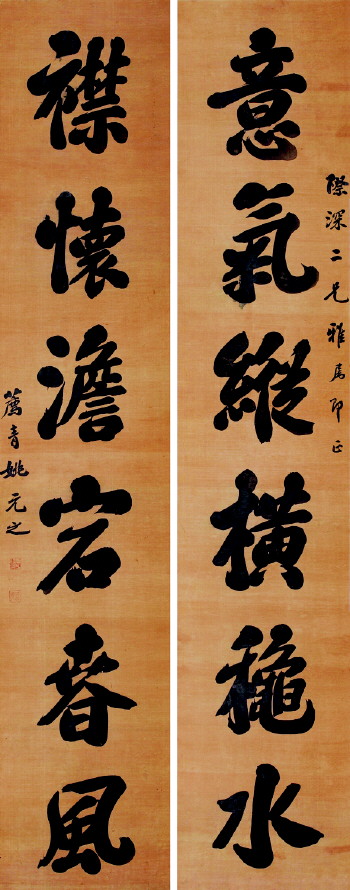 際深二兄雅屬印正
意氣縱橫穐水
襟懷澹宕春風
薦青姚元之